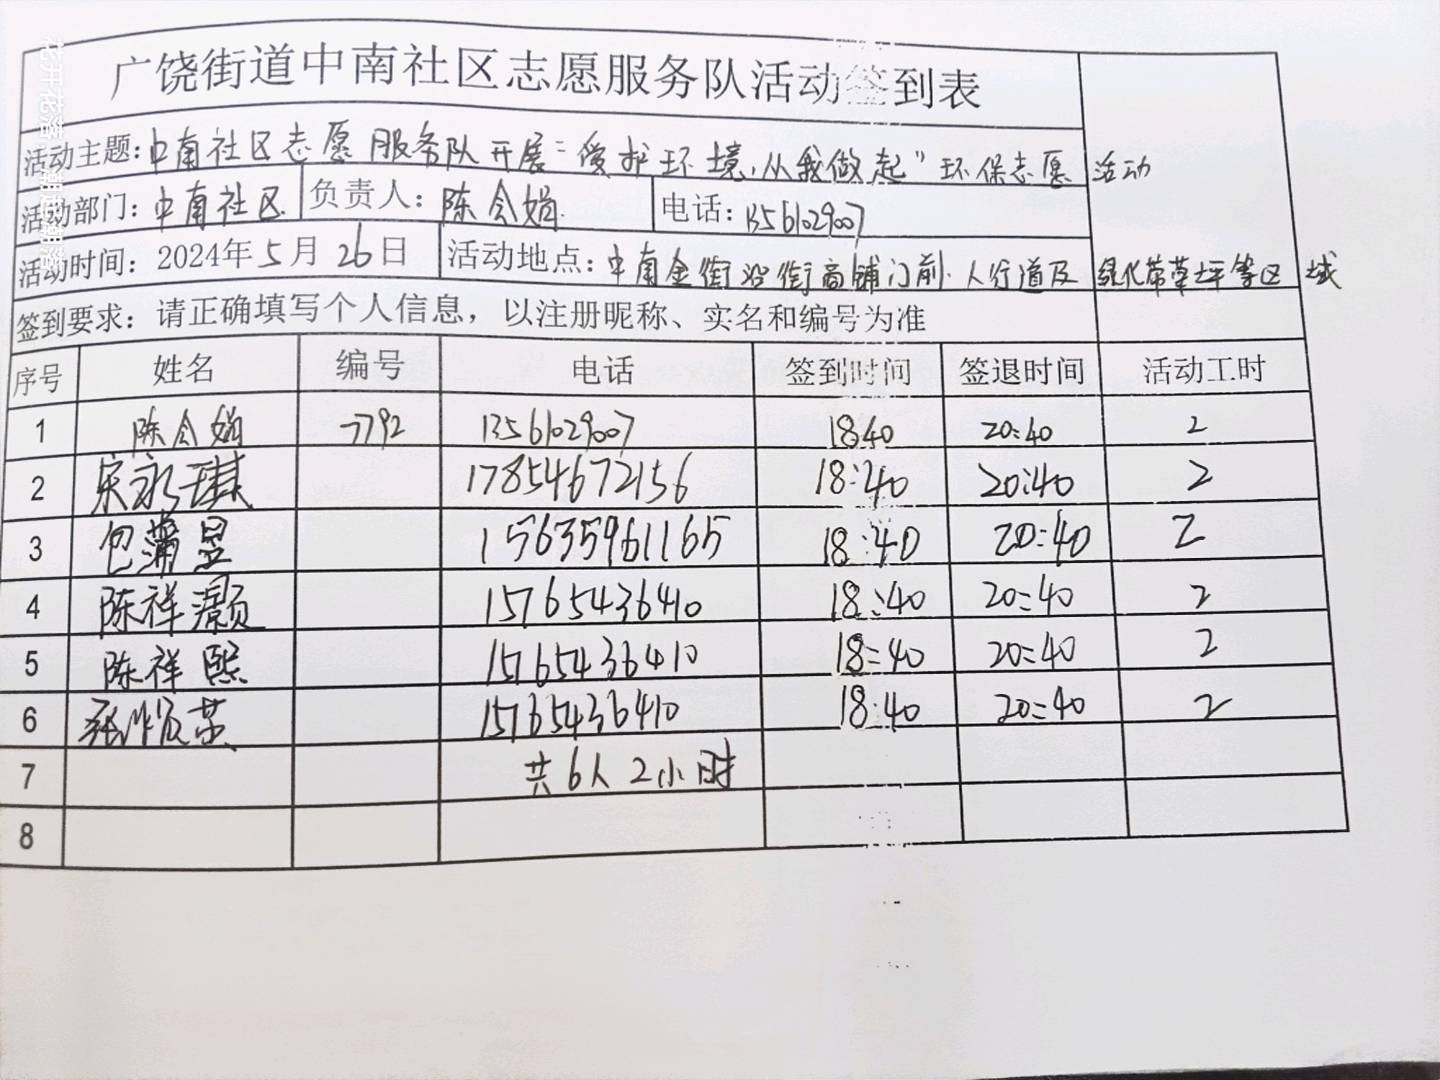 广饶街道中南社区志愿服务队活动签到表
活动主题：中南社区志愿服务队开展“爱护环境，从我做起”环保志愿活动
活动部门：中南社区 负责人：陈令娟 电话：13561029007
活动时间：2024年5月26日 活动地点：中南金街沿街商铺门前人行道及绿化带草坪等区域
签到要求：请正确填写个人信息，以注册昵称、实名和编号为准
序号 姓名 编号 电话 签到时间 签退时间 活动工时
1 陈令娟 7792 13561029007 18:40 20:40 2
2 宋永琪 17854672156 18:40 20:40 2
3 包蒲昱 15635961165 18:40 20:40 2
4 陈祥灏 15765436410 18:40 20:40 2
5 陈祥熙 15765436410 18:40 20:40 2
6 15765436410 18:40 20:40 2
7 共6人2小时
8
花开花落